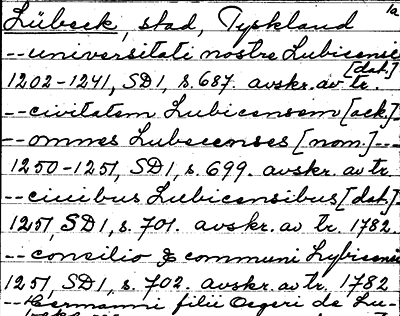 Lübeck, stad, Tyskland 1a
--universitati nostre Lubicensi
[dat.]
1202-1241, SD1, s.687. avskr. av tr.
--civitatem Lubicensem [ack.]
--omnes Lubecenses [nom.]---
1250-1251, SD1, s.699. avskr. av tr.
--ciuibus Lubicensibus [dat.]
1251, SD1, s. 701. avskr. av tr. 1782.
--consilio & communi Lybicensi
1251, SD1, s. 702. avskr. av tr. 1782
--Hermanni filii Osgeri de Lu-